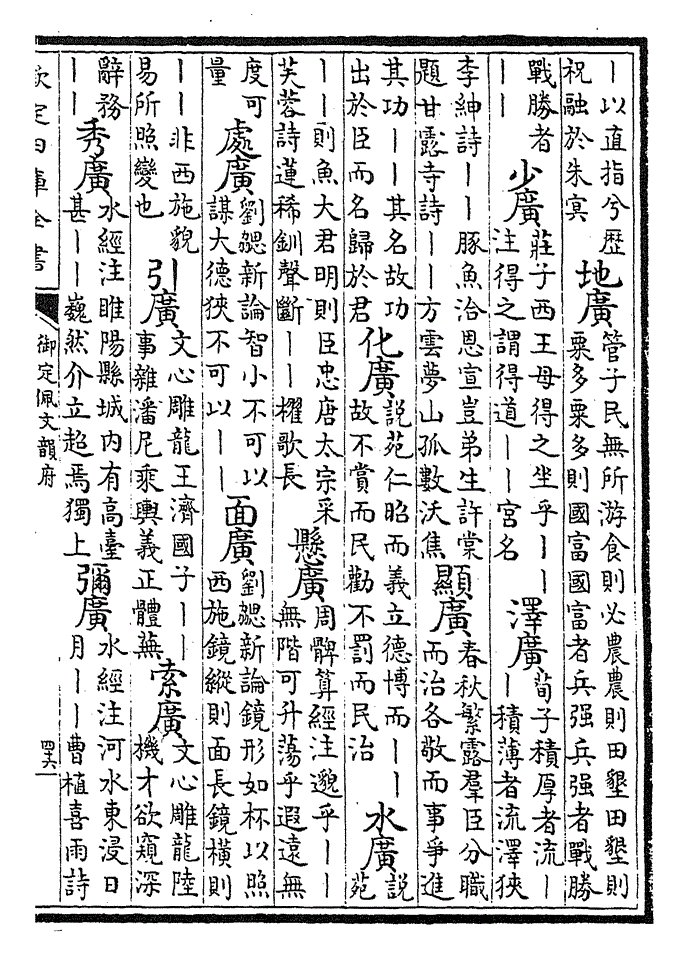 〡以直指兮歷
祝融於朱冥
地廣
管子民無所游食則必農農則田墾田墾則
粟多粟多則國富國富者兵强兵强者戰勝
戰勝者
〡〡
少廣
莊子西王母得之坐乎〡〡
注得之謂得道〡〡宮名
澤廣
荀子積厚者流〡
〡積薄者流澤狹
李紳詩〡〡豚魚洽恩宣豈弟生許棠
題甘露寺詩〡〡方雲夢山孤數沃焦
顯廣
春秋繁露羣臣分職
而治各敬而事爭進
其功〡〡其名故功
出於臣而名歸於君
化廣
說苑仁昭而義立德博而〡〡
故不賞而民勸不罰而民治
水廣
說
苑
〡〡則魚大君明則臣忠唐太宗采
芙蓉詩蓮稀釧聲斷〡〡櫂歌長
懸廣
周髀算經注邈乎〡〡
無階可升蕩乎遐遠無
度可
量
處廣
劉勰新論智小不可以
謀大德狹不可以〡〡
面廣
劉勰新論鏡形如杯以照
西施鏡縱則面長鏡橫則
〡〡非西施貌
易所照變也
引廣
文心雕龍王濟國子〡〡
事雜潘尼乘輿義正體蕪
索廣
文心雕龍陸
機才欲窺深
辭務
〡〡
秀廣
水經注睢陽縣城内有高臺
甚〡〡巍然介立超焉獨上
彌廣
水經注河水東浸日
月〡〡曹植喜雨詩
欽定四庫全書
御定佩文韻府
四六